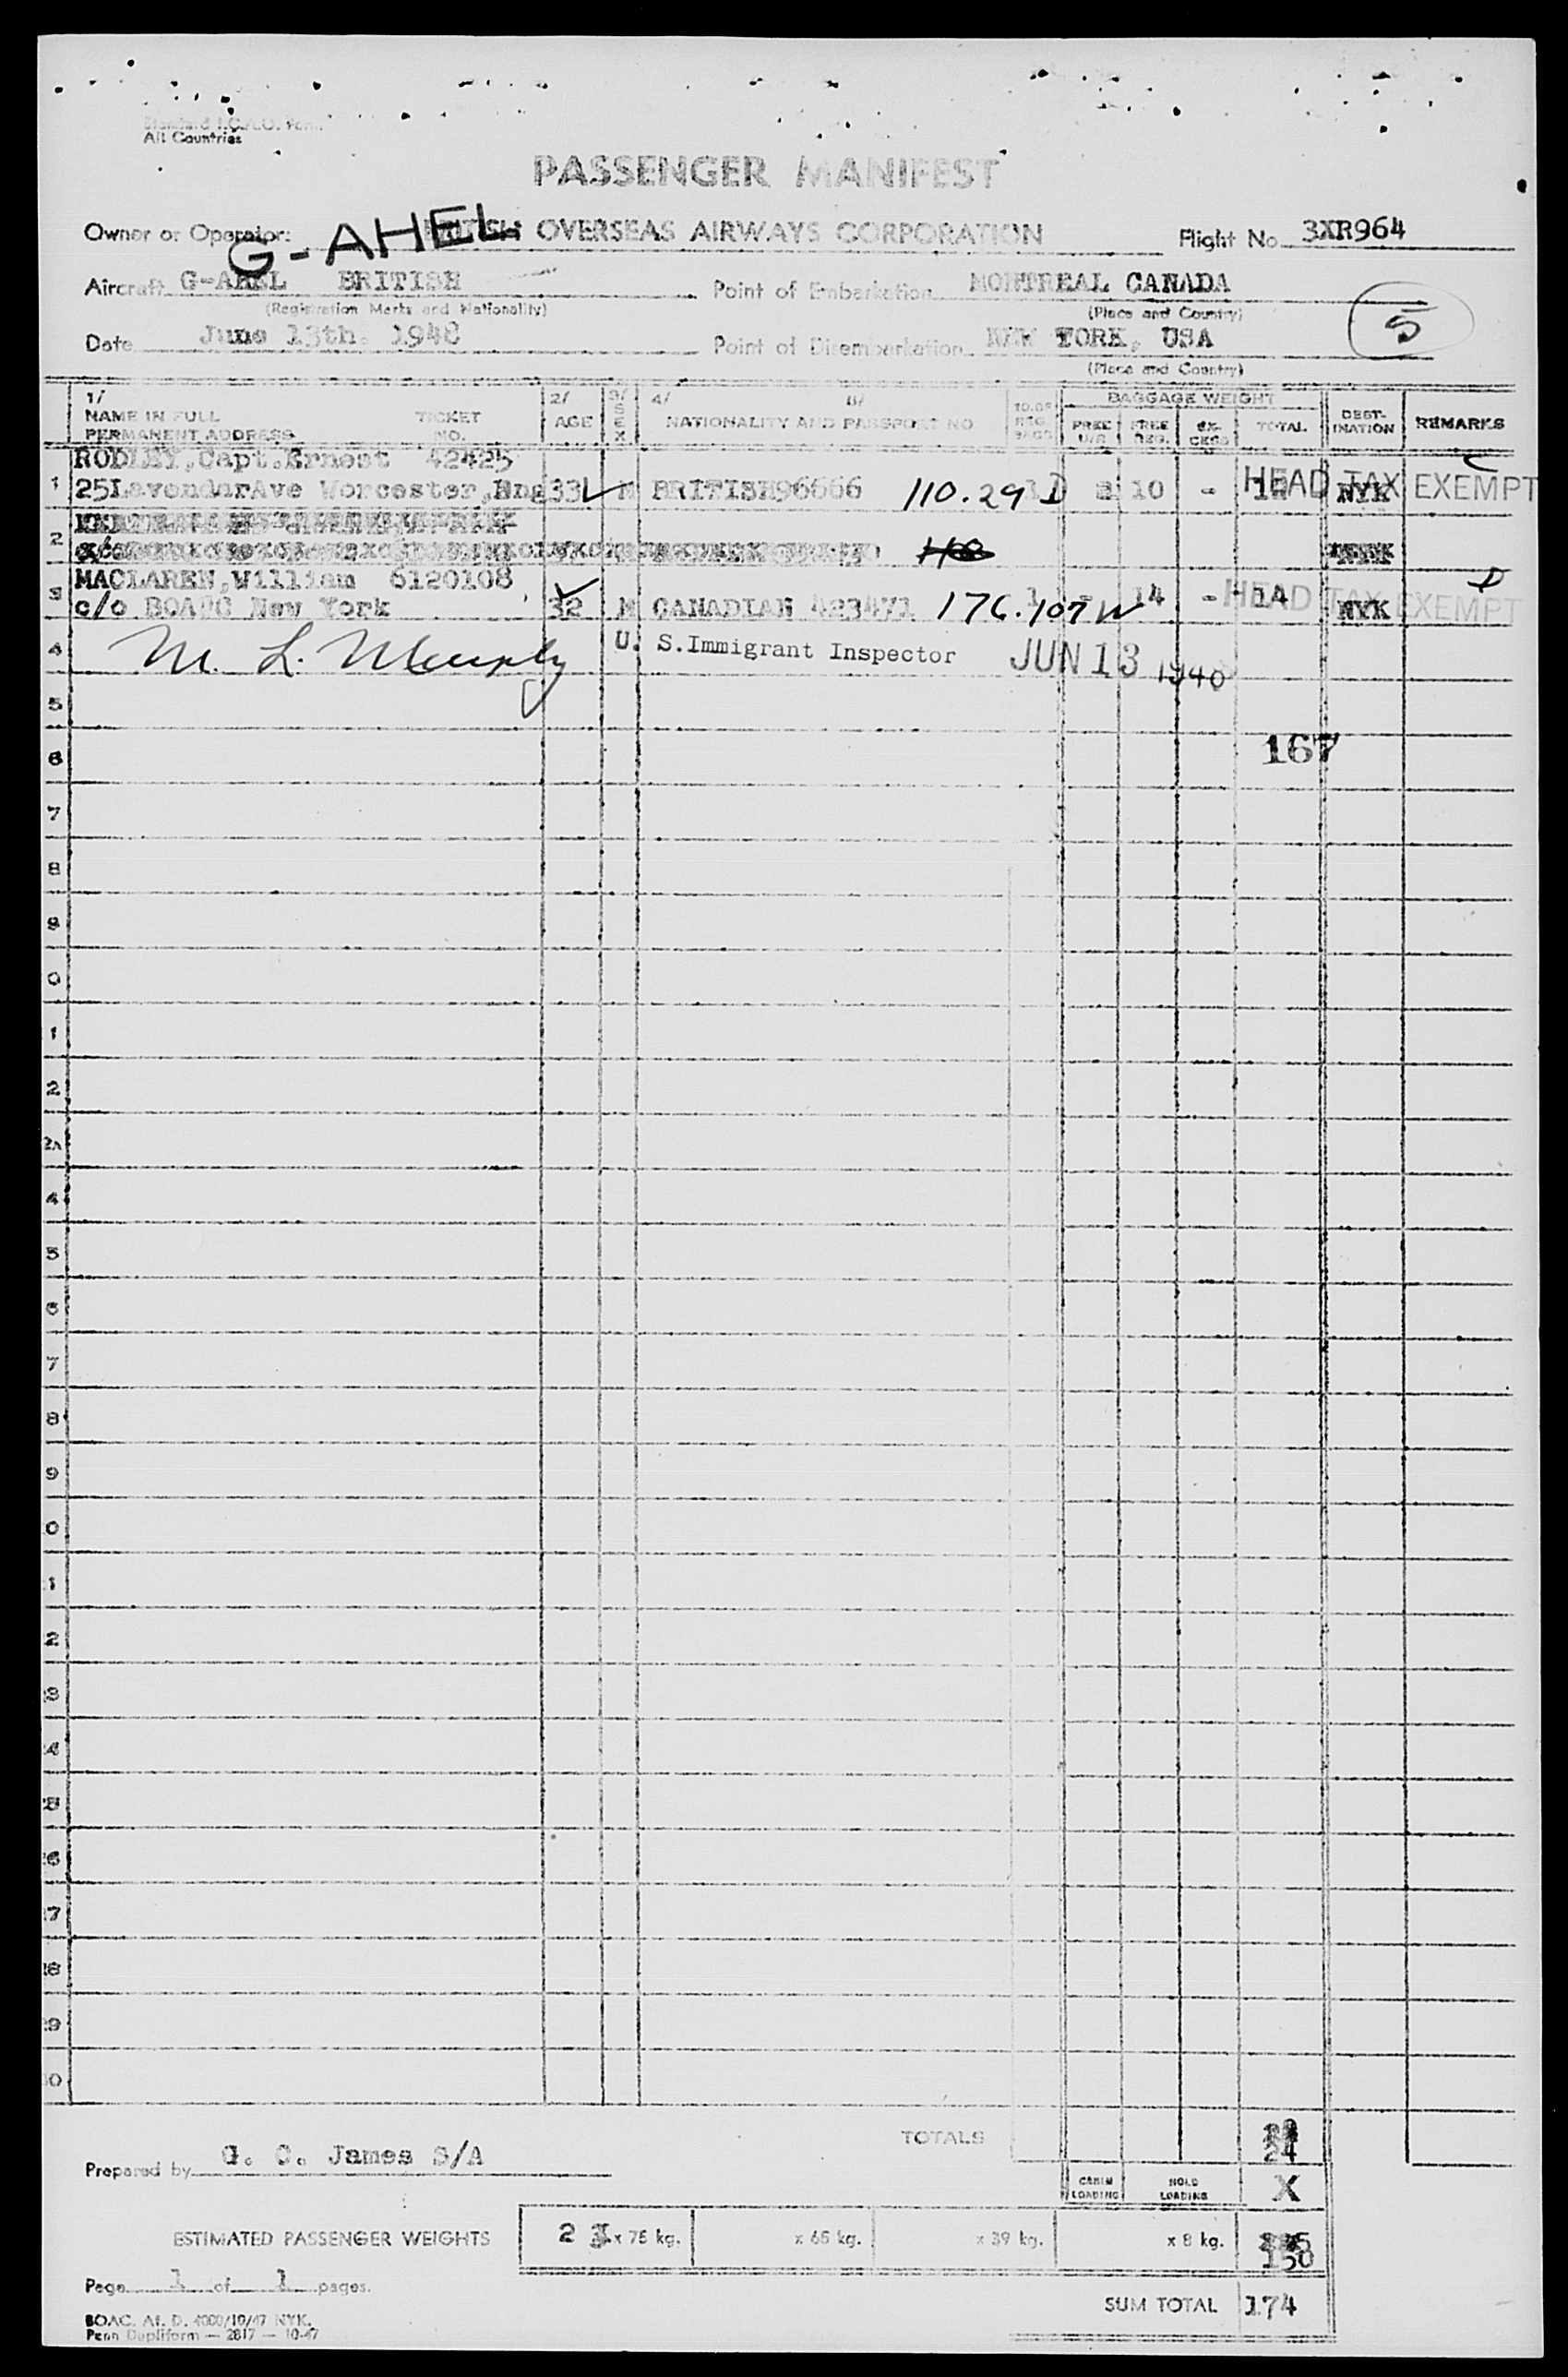 All Countries
PASSENGER MANIFEST
Owner or Operator: BRITISH OVERSEAS AIRWAYS CORPORATION Flight No 3XR964
G-AHEL
Aircraft G-AHEL BRITISH Point of Embarkation MONTREAL CANADA
(Registration Marks and Nationality) (Place and Country)
Date June 13th. 1948 Point of Disembarkation NEW YORK, USA 5
(Place and Country)
1/ 2/ 3/ 4/ BAGGAGE WEIGHT
NAME IN FULL TICKET AGE SEX NATIONALITY AND PASSPORT NO FREE FREE EX- TOTAL DEST- REMARKS
PERMANENT ADDRESS NO. REG. CESS INATION
RODLEY, Capt. Ernest 42425
1 25LavendarAve Worcester, Eng 33 M BRITISH96666 110.29 D 10 - HEAD TAX EXEMPT NYK
2
MACLAREN, William 6120108
3 c/o BOAC New York 32 M CANADIAN 423471 176.107 W 1 - 14 - 14 HEAD TAX EXEMPT NYK D
4 M. L. Murphy U. S. Immigrant Inspector JUN 13 1948
5
6 167
7
8
9
0
1
2
4
5
6
7
8
9
0
1
2
3
4
6
7
8
9
0
TOTALS 24
Prepared by G. C. James S/A
CABIN LOADING HOLD LOADING X
ESTIMATED PASSENGER WEIGHTS 2 x 75 kg. x 65 kg. x 39 kg. x 8 kg. 150
Page 1 of 1 pages.
SUM TOTAL 174
BOAC. Af. D. 4000/10/47 NYK.
Penn Dupliform — 2817 — 10-47